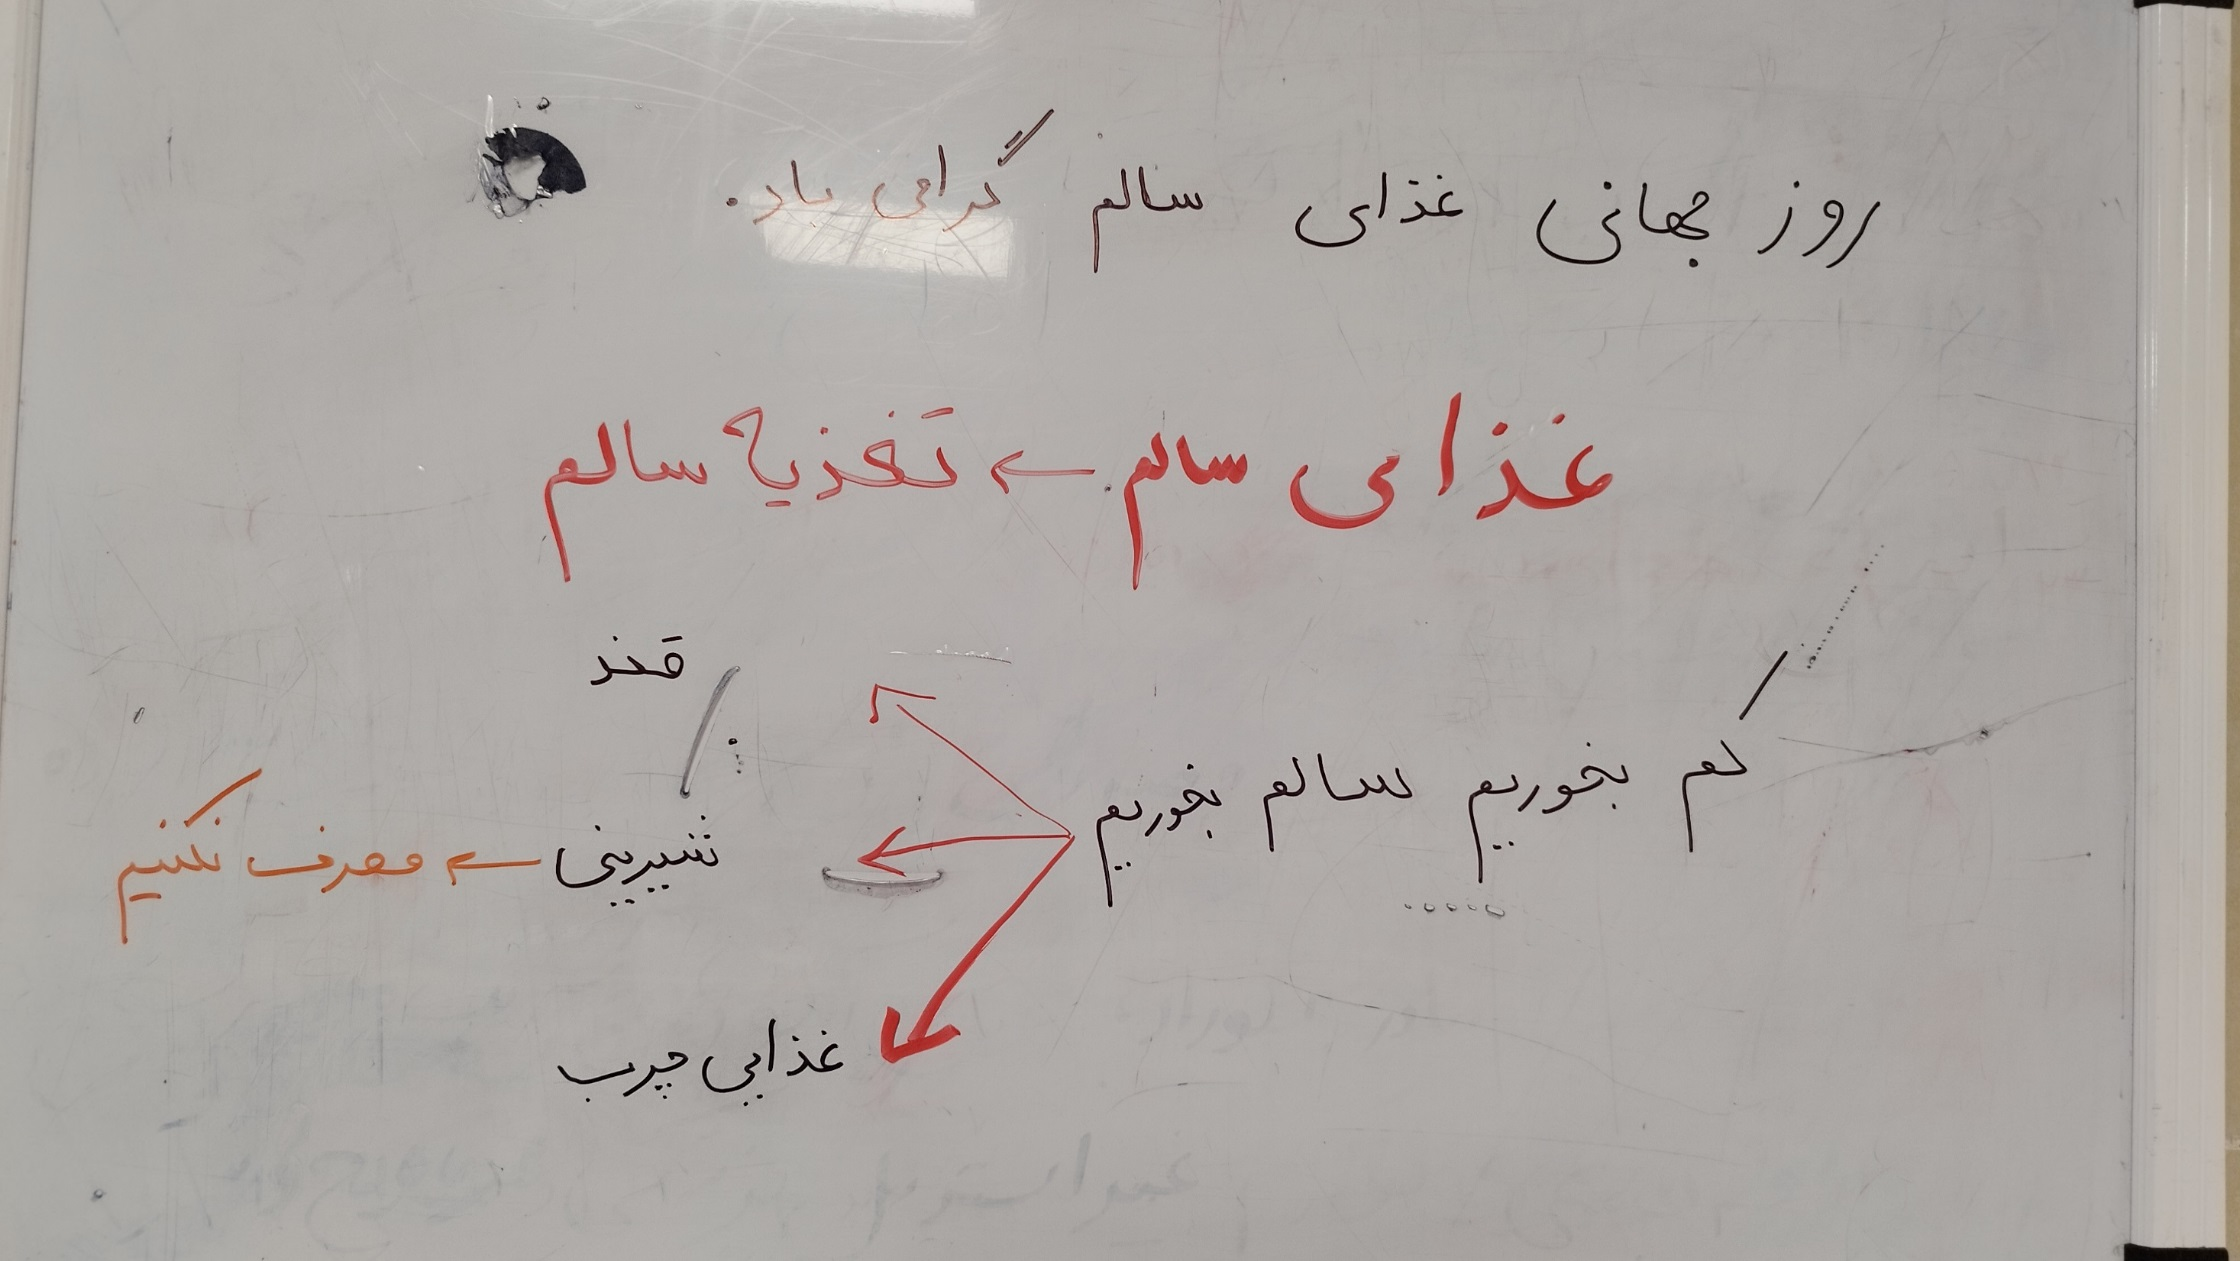 روز جهانی غذای سالم گرامی باد.
غذای سالم ← تغذیه سالم
قند
کم بخوریم سالم بخوریم
شیرینی ← مصرف نکنیم
غذایی چرب